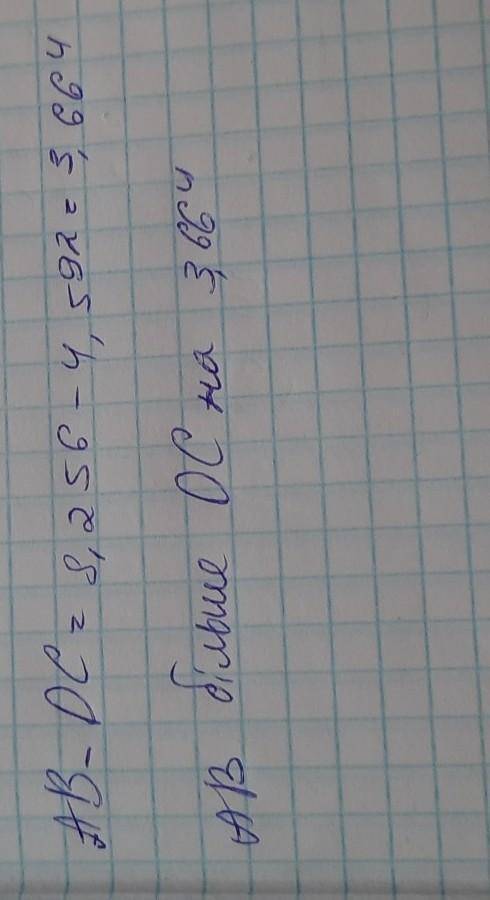 AB - DC = 8,256 - 4,592 = 3,664
AB більше DC на 3,664